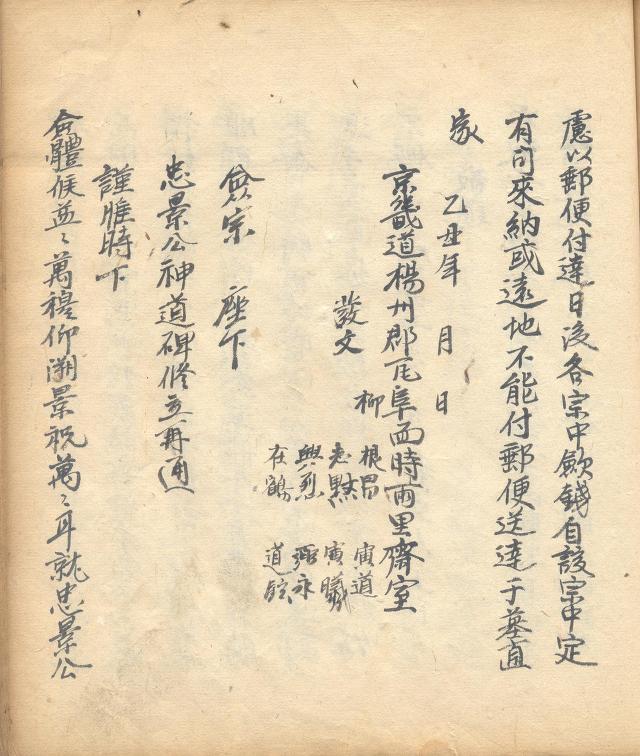 慮以郵便付達日後各宗中斂錢自設宗中定
有司來納或遠地不能付郵便送達于墓直
家
乙丑年 月 日
京畿道楊州郡瓦阜面時雨里齋室
發文 柳 根昌 寅道
志默 寅曦
興烈 弼永
在鶴 道鉉
僉宗 座下
忠景公神道碑修立再通
謹惟時下
僉體候益〻萬穆仰溯景祝萬〻耳就忠景公